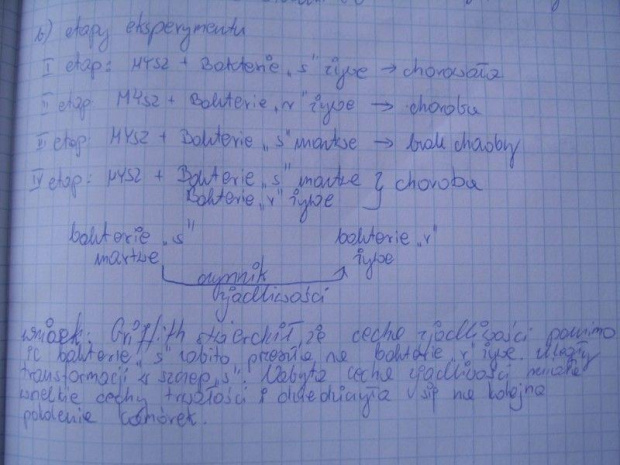 b) etapy eksperymentu
I etap: MYSZ + Bakterie „s" żywe → chorowała
II etap MYSZ + Bakterie „r" żywe → choroba
II etap MYSZ + Bakterie „s" martwe → brak choroby
IV etap: MYSZ + Bakterie „s" martwe } choroba
Bakterie „r" żywe
bakterie „s" bakterie „r"
martwe żywe
czynnik
zjadliwości
wniosek: Griffith stwierdził że cecha zjadliwości pomimo
że bakterie „s" zabito przeszła na bakterie „r" żywe. Uległy
transformacji w szczep „s". Nabyta cecha zjadliwości miała
wszelkie cechy trwałości i dziedziczyła się na kolejne
pokolenie komórek.